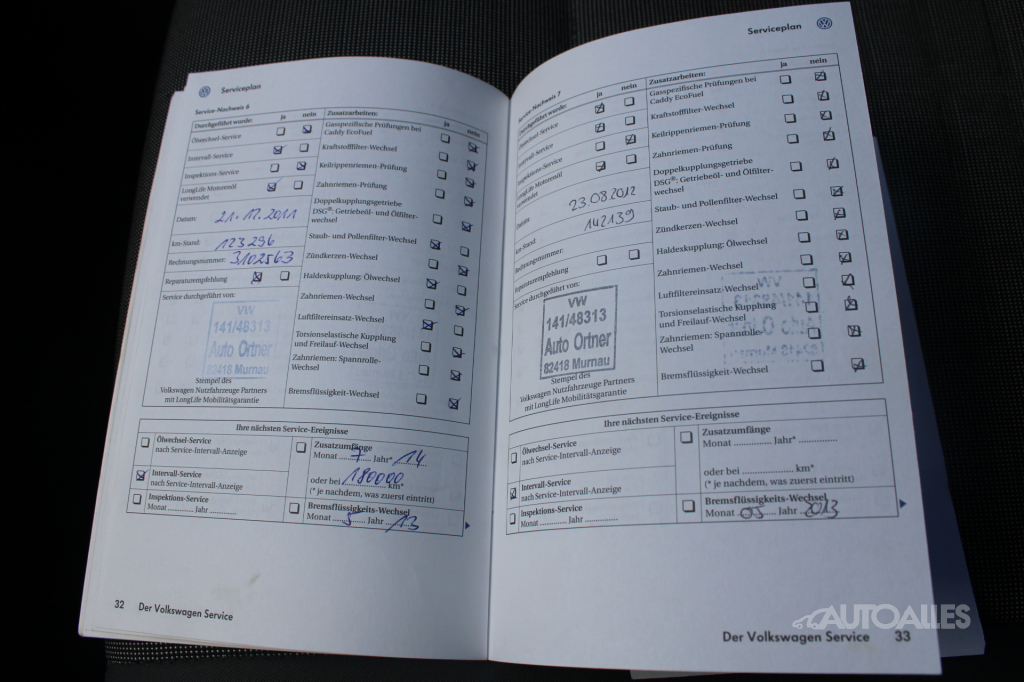 Serviceplan
Service-Nachweis 6
Durchgeführt wurde: ja nein
Ölwechsel-Service
Intervall-Service
Inspektions-Service
LongLife Motorenöl
verwendet
Datum: 21.12.2011
km-Stand: 123296
Rechnungsnummer: 3102563
Reparaturempfehlung
Service durchgeführt von:
VW
141/48313
Auto Ortner
82418 Murnau
Stempel des
Volkswagen Nutzfahrzeuge Partners
mit LongLife Mobilitätsgarantie
Zusatzarbeiten: ja nein
Gasspezifische Prüfungen bei
Caddy EcoFuel
Kraftstofffilter-Wechsel
Keilrippenriemen-Prüfung
Zahnriemen-Prüfung
Doppelkupplungsgetriebe
DSG®: Getriebeöl- und Ölfilter-
wechsel
Staub- und Pollenfilter-Wechsel
Zündkerzen-Wechsel
Haldexkupplung: Ölwechsel
Zahnriemen-Wechsel
Luftfiltereinsatz-Wechsel
Torsionselastische Kupplung
und Freilauf-Wechsel
Zahnriemen: Spannrolle-
Wechsel
Bremsflüssigkeit-Wechsel
Ihre nächsten Service-Ereignisse
Ölwechsel-Service
nach Service-Intervall-Anzeige
Intervall-Service
nach Service-Intervall-Anzeige
Inspektions-Service
Monat ............ Jahr ............
Zusatzumfänge
Monat 7 Jahr* 14
oder bei 180000 km*
(* je nachdem, was zuerst eintritt)
Bremsflüssigkeits-Wechsel
Monat 5 Jahr 13
32 Der Volkswagen Service
Serviceplan
Service-Nachweis 7
Durchgeführt wurde: ja nein
Ölwechsel-Service
Intervall-Service
Inspektions-Service
LongLife Motorenöl
verwendet
Datum: 23.08.2012
km-Stand: 142139
Rechnungsnummer:
Reparaturempfehlung
Service durchgeführt von:
VW
141/48313
Auto Ortner
82418 Murnau
Stempel des
Volkswagen Nutzfahrzeuge Partners
mit LongLife Mobilitätsgarantie
Zusatzarbeiten: ja nein
Gasspezifische Prüfungen bei
Caddy EcoFuel
Kraftstofffilter-Wechsel
Keilrippenriemen-Prüfung
Zahnriemen-Prüfung
Doppelkupplungsgetriebe
DSG®: Getriebeöl- und Ölfilter-
wechsel
Staub- und Pollenfilter-Wechsel
Zündkerzen-Wechsel
Haldexkupplung: Ölwechsel
Zahnriemen-Wechsel
Luftfiltereinsatz-Wechsel
Torsionselastische Kupplung
und Freilauf-Wechsel
Zahnriemen: Spannrolle-
Wechsel
Bremsflüssigkeit-Wechsel
Ihre nächsten Service-Ereignisse
Ölwechsel-Service
nach Service-Intervall-Anzeige
Intervall-Service
nach Service-Intervall-Anzeige
Inspektions-Service
Monat ............ Jahr ............
Zusatzumfänge
Monat ............ Jahr* ............
oder bei .................... km*
(* je nachdem, was zuerst eintritt)
Bremsflüssigkeits-Wechsel
Monat 05 Jahr 2013
Der Volkswagen Service 33
AUTOALLES